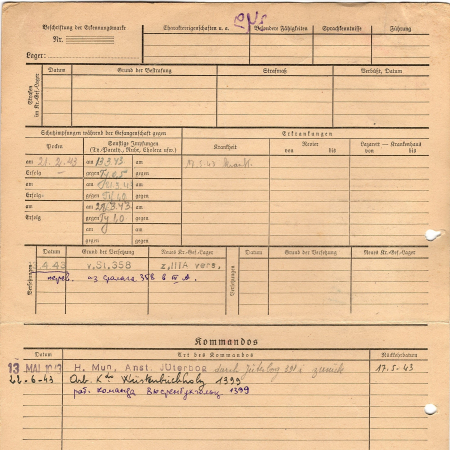 Beschriftung der Erkennungsmarke
Nr.
Lager:
Charaktereigenschaften u. a.
Besondere Fähigkeiten
Sprachkenntnisse
Führung
Strafen im Kr.-Gef.-Lager
Datum
Grund der Bestrafung
Strafmaß
Verbüßt, Datum
Schutzimpfungen während der Gefangenschaft gegen
Erkrankungen
Pocken
Sonstige Impfungen
(Ty.-Paraty., Ruhr, Cholera usw.)
Krankheit
Revier
von bis
Lazarett — Krankenhaus
von bis
am 21.2.43
am 13.3.43
am
Erfolg —
gegen Ty 0.5
gegen
am
am
am
Erfolg
gegen Ty 1.0
gegen
am
am
am
Erfolg
gegen Ty 1.0
gegen
am
am
gegen
gegen
Versetzungen
Datum
Grund der Versetzung
Neues Kr.-Gef.-Lager
Versetzungen
Datum
Grund der Versetzung
Neues Kr.-Gef.-Lager
4 43
v. St. 358
z. IIIA vers.
из 358 в III A.
Kommandos
Datum
Art des Kommandos
Rückkehrdatum
13 MAI
H. Mun. Anst. Jüterbog
zurück
17.5.43
22.6.43
Arb. Kdo Wüstenbuchholz 1399
раб. команда Вюстенбухгольц 1399